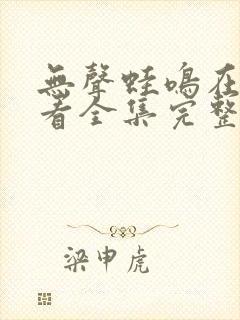 無聲蛙鳴在
看全集完整
梁申虎